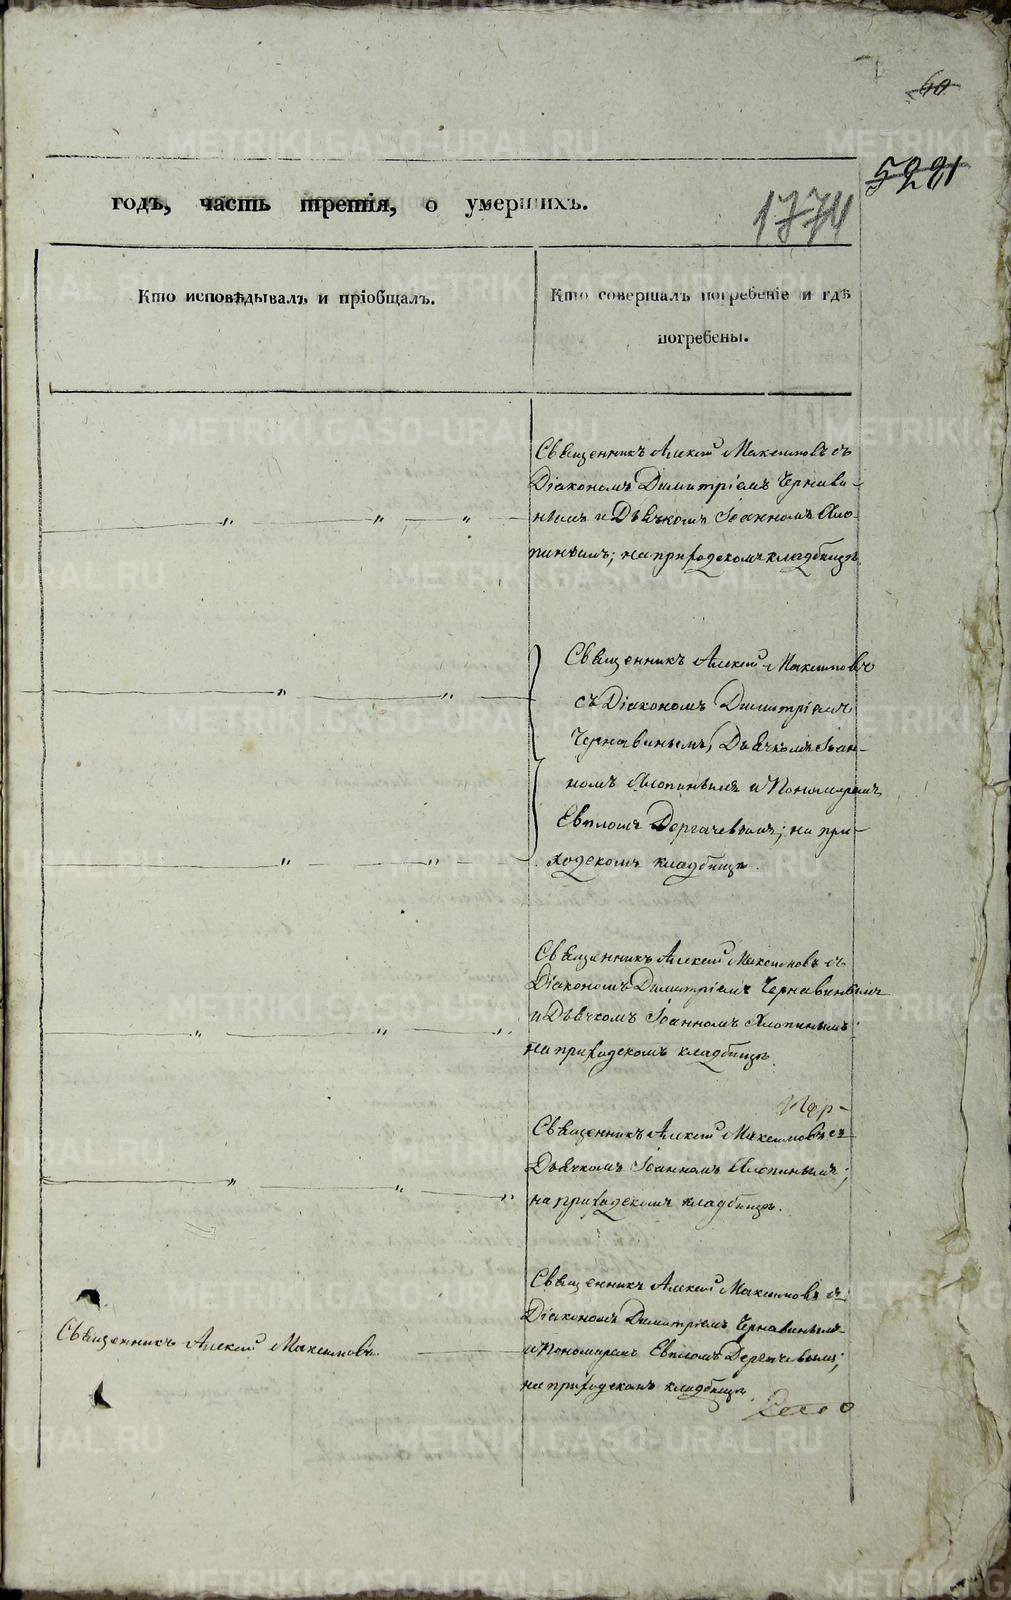 60
5221
годъ, часть третія, о умершихъ.
1774
Кто исповѣдывалъ и пріобщалъ.
Кто совершалъ погребеніе и гдѣ
погребены.
Священникъ Алексій Максимовъ съ
Діакономъ Димитріемъ Чернави-
нымъ и Дьячкомъ Іоанномъ Хло-
пинымъ; на приходскомъ кладбищѣ
Священникъ Алексій Максимовъ
съ Діакономъ Димитріемъ
Чернавинымъ, Дьячкомъ Іоан-
номъ Хлопинымъ и Пономаремъ
Евпломъ Дергачевымъ; на при-
ходскомъ кладбищѣ.
Священникъ Алексій Максимовъ съ
Діакономъ Димитріемъ Чернавинымъ
и Дьячкомъ Іоанномъ Хлопинымъ
на приходскомъ кладбищѣ.
Священникъ Алексій Максимовъ съ
Дьячкомъ Іоанномъ Хлопинымъ;
на приходскомъ кладбищѣ.
Священникъ Алексій Максимовъ съ
Діакономъ Димитріемъ Чернавинымъ
и Пономаремъ Евпломъ Дергачевымъ;
на приходскомъ кладбищѣ
Священникъ Алексій Максимовъ.
METRIKI.GASO-URAL.RU